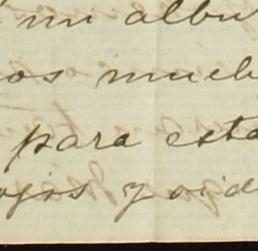 mi albu
os much
para esta
ojos y oid